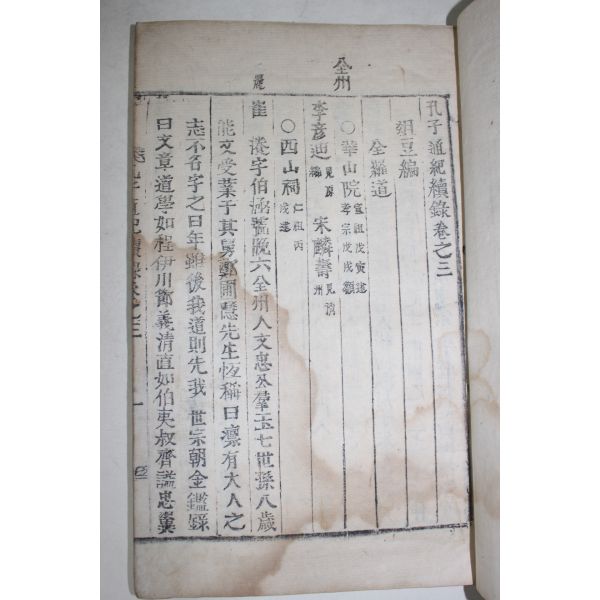 全州
麗
孔子通紀續錄卷之三
俎豆編
全羅道
○華山院 宣祖戊寅建 孝宗戊戌額
李彦迪 宋麟壽 見清州
○西山祠 仁祖丙戌建
崔 字伯 六全州人文忠公 七世孫八歲
能文受業于其舅鄭圃隱先生恆稱曰凛有大人之
志不名字之曰年雖後我道則先我 世宗朝金鑑錄
曰文章道學如程伊川節義清直如伯夷叔齊諡忠翼